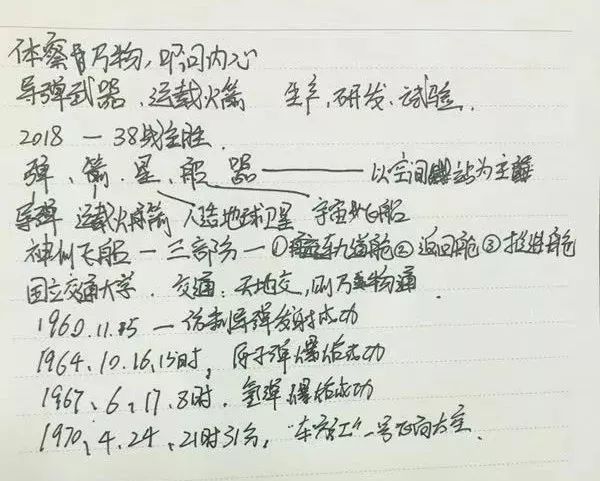 体察万物，叩问内心
导弹武器、运载火箭 生产、研发、试验.
2018 — 38战全胜.
弹、箭、星、船 器 —— 以空间站为主
导弹 运载火箭 人造地球卫星 宇宙飞船
神州飞船 — 三部分 — ①轨道舱② 返回舱③ 推进舱
国立交通大学. 交通：天地交，则万物通.
1960.11.5 — 仿制导弹发射成功
1964、10.16,15时，原子弹爆炸成功
1967、6、17、8时. 氢弹爆炸成功
1970、4、24、21时31分，"东方红"一号飞向太空.